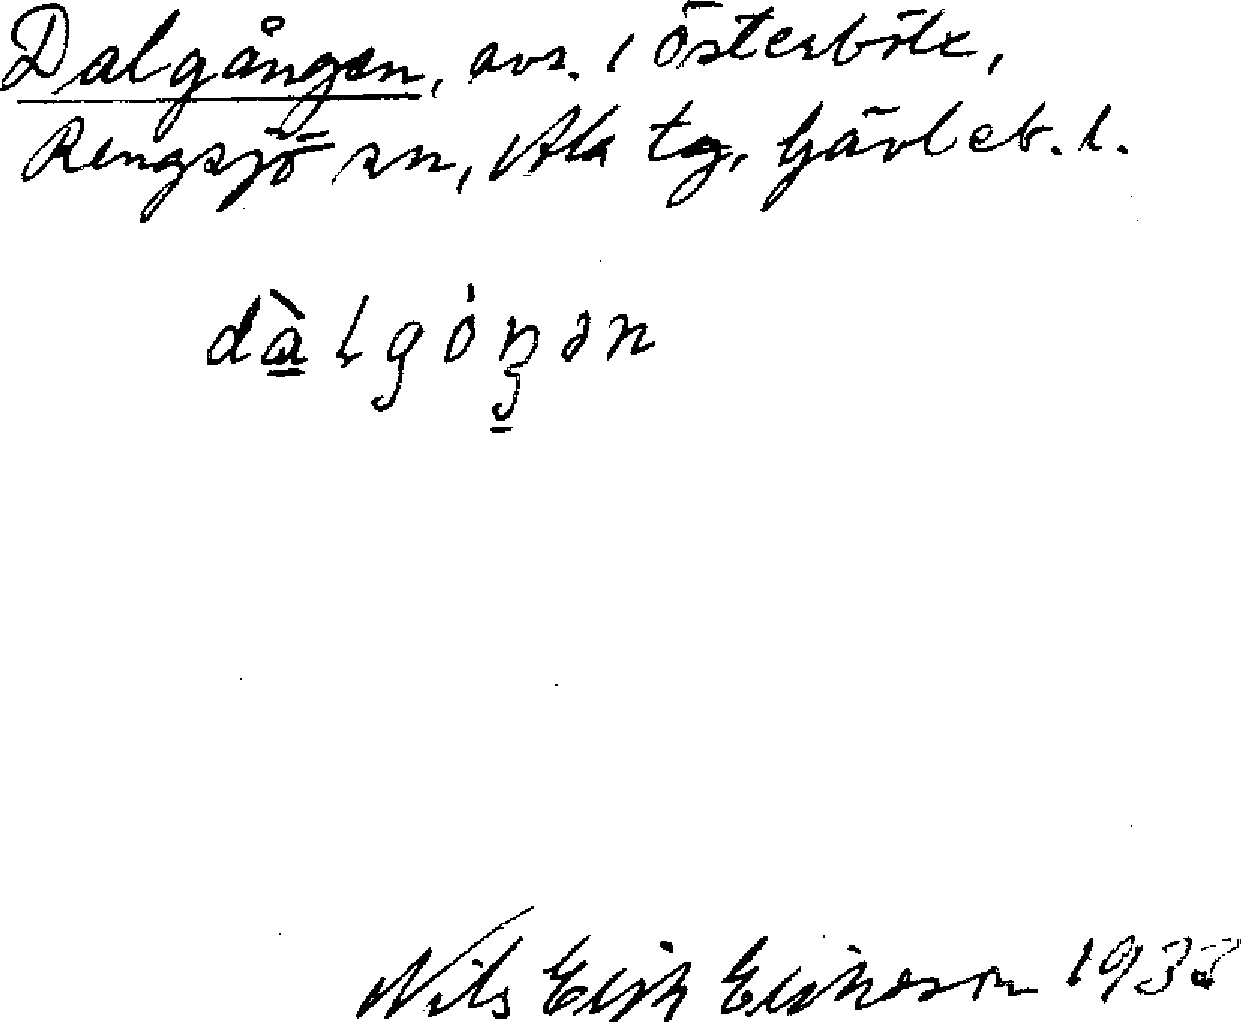 Dalgången, avs. i Österböle,
Rengsjö sn, Ala tg, Gävleb. l.
dàlgóŋən
Nils Erik Erikson 1933